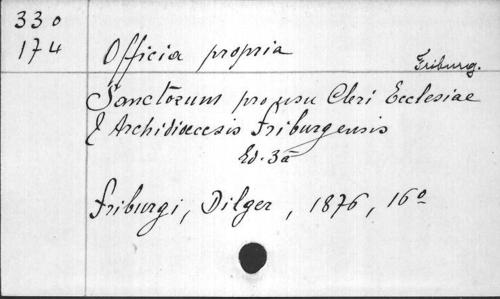 330
174
Officia propria
Friburg.
Sanctorum pro usu Cleri Ecclesiae
& Archidioecesis Friburgensis
Ed. 3a
Friburgi, Dilger, 1876, 16o